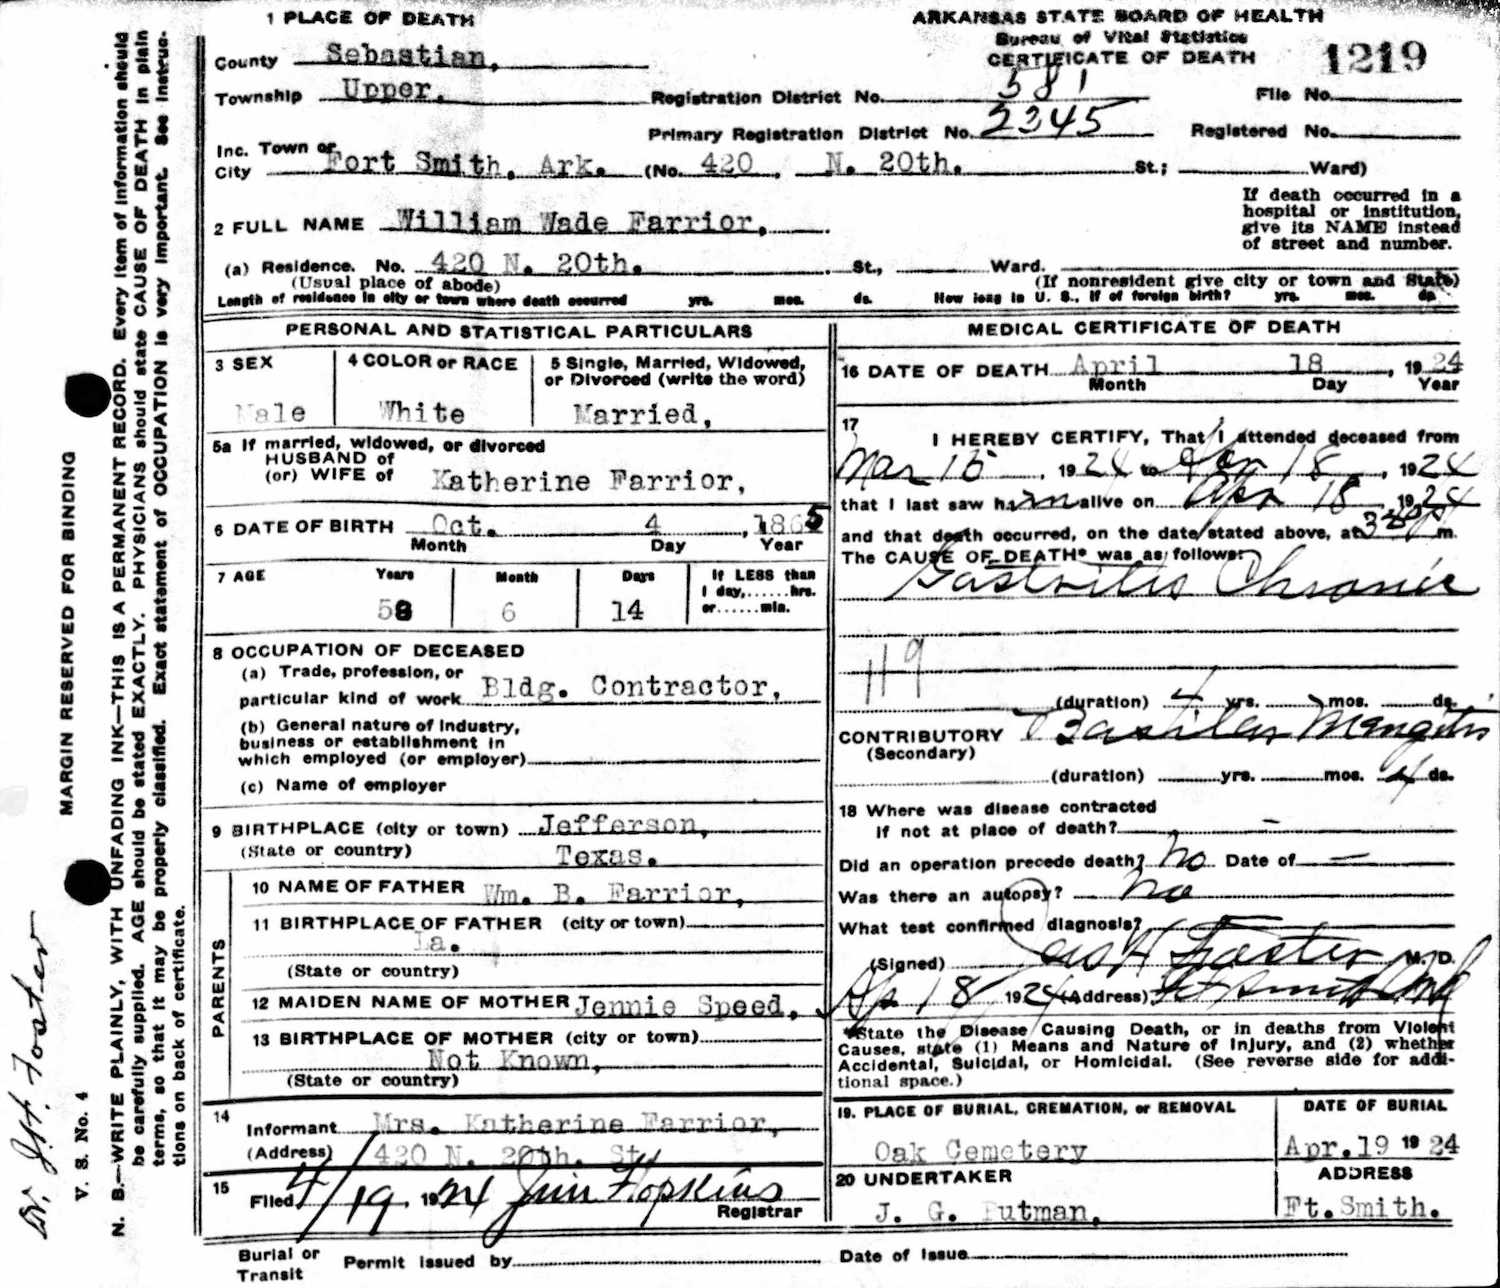 1 PLACE OF DEATH
ARKANSAS STATE BOARD OF HEALTH
Bureau of Vital Statistics
CERTIFICATE OF DEATH
1219
County Sebastian,
Township Upper,
Registration District No. 581
File No.
Primary Registration District No. 2345
Registered No.
Inc. Town or
City Fort Smith, Ark. (No. 420, N. 20th. St.; Ward)
If death occurred in a
hospital or institution,
give its NAME instead
of street and number.
2 FULL NAME William Wade Farrior,
(a) Residence. No. 420 N. 20th. St., Ward.
(Usual place of abode)
(If nonresident give city or town and State)
Length of residence in city or town where death occurred yrs. mos. ds. How long in U. S., if of foreign birth? yrs. mos. ds
PERSONAL AND STATISTICAL PARTICULARS
3 SEX
Male
4 COLOR or RACE
White
5 Single, Married, Widowed,
or Divorced (write the word)
Married,
5a If married, widowed, or divorced
HUSBAND of
(or) WIFE of Katherine Farrior,
6 DATE OF BIRTH Oct. 4, 1865
Month Day Year
7 AGE
Years Month Days
58 6 14
If LESS than
1 day,......hrs.
or......min.
8 OCCUPATION OF DECEASED
(a) Trade, profession, or
particular kind of work Bldg. Contractor,
(b) General nature of industry,
business or establishment in
which employed (or employer)
(c) Name of employer
9 BIRTHPLACE (city or town) Jefferson,
(State or country) Texas.
PARENTS
10 NAME OF FATHER Wm. B. Farrior,
11 BIRTHPLACE OF FATHER (city or town)
La.
(State or country)
12 MAIDEN NAME OF MOTHER Jennie Speed,
13 BIRTHPLACE OF MOTHER (city or town)
Not Known,
(State or country)
14
Informant Mrs. Katherine Farrior,
(Address) 420 N. 20th. St.
15
Filed 4/19 1924 Jim Hopkins
Registrar
MEDICAL CERTIFICATE OF DEATH
16 DATE OF DEATH April 18, 1924
Month Day Year
17
I HEREBY CERTIFY, That I attended deceased from
Mar 15, 1924 to Apr 18, 1924
that I last saw him alive on Apr 18 1924
and that death occurred, on the date stated above, at 3 m.
The CAUSE OF DEATH* was as follows:
Gastritis Chronic
119
(duration) 4 yrs. mos. ds.
CONTRIBUTORY Basilar Mengitis
(Secondary)
(duration) yrs. mos. 4 ds.
18 Where was disease contracted
if not at place of death? -
Did an operation precede death? No Date of -
Was there an autopsy? no
What test confirmed diagnosis?
(Signed) Jas H Foster M. D.
Ap 18 1924 (Address) Ft Smith Ark
*State the Disease Causing Death, or in deaths from Violent
Causes, state (1) Means and Nature of Injury, and (2) whether
Accidental, Suicidal, or Homicidal. (See reverse side for addi-
tional space.)
19. PLACE OF BURIAL, CREMATION, or REMOVAL
Oak Cemetery
DATE OF BURIAL
Apr.19 1924
20 UNDERTAKER
J. G. Putman,
ADDRESS
Ft.Smith.
Burial or
Transit
Permit issued by
Date of Issue
MARGIN RESERVED FOR BINDING
N. B.—WRITE PLAINLY, WITH UNFADING INK—THIS IS A PERMANENT RECORD. Every item of information should
be carefully supplied. AGE should be stated EXACTLY. PHYSICIANS should state CAUSE OF DEATH in plain
terms, so that it may be properly classified. Exact statement of OCCUPATION is very important. See instruc-
tions on back of certificate.
V. S. No. 4
Dr. J.H. Foster